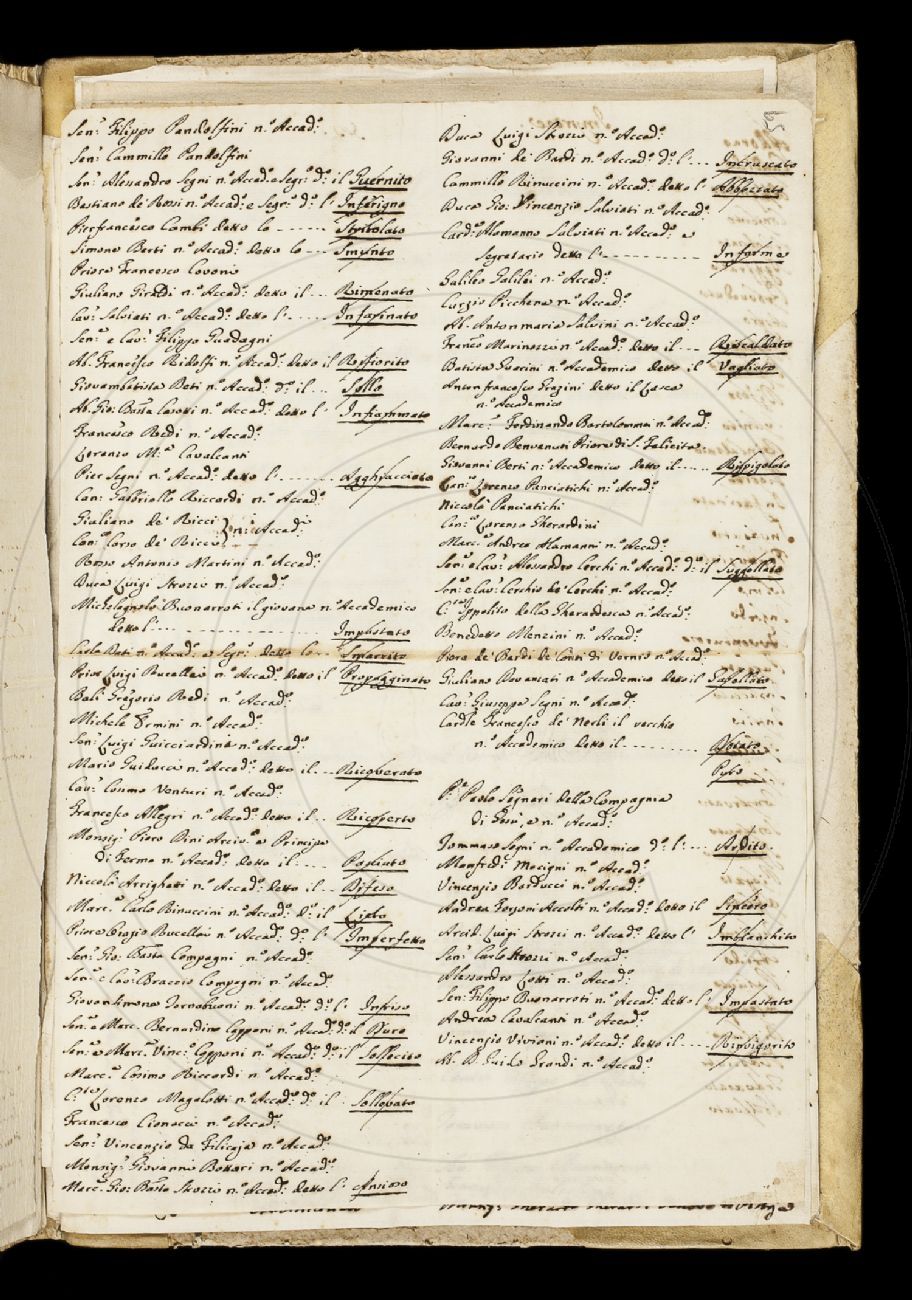 Sen.e Filippo Pandolfini n.o Accad.o
Sen.e Cammillo Pandolfini
Sen.e Alesandro Segni n.o Accad.o e Segr.o d.o il Guernito
Bastiano de' Rossi n.o Accad.o e Segr.o d.o l' Inferigno
Pierfrancesco Cambi detto lo ------ Stritolato
Simone Berti n.o Accad.o detto lo ---- Smunto
Priore Francesco Covoni
Giuliano Giraldi n.o Accad.o detto il --- Rimenato
Cav.e Salviati n.o Accad.o detto l' ----- Infarinato
Sen.e e Cav.e Filippo Guadagni
Ab. Francesco Ridolfi n.o Accad.o detto il Rifiorito
Giovambatista Deti n.o Accad.o d.o il --- Sollo
Ab. Gio: Batta Casotti n.o Accad.o detto l' Infiammato
Francesco Redi n.o Accad.o
Lorenzo M.a Cavalcanti
Pier Segni n.o Accad.o detto l' ------- Agghiacciato
Can.o Gabbriello Riccardi n.o Accad.o
Giuliano de' Ricci
Can.o Corso de' Ricci } n.i Accad.i
Rosso Antonio Martini n.o Accad.o
Duca Luigi Strozzi n.o Accad.o
Michelagnolo Buonarroti il giovane n.o Accademico
detto l' ------------------ Impastato
Carlo Dati n.o Accad.o e Segr.o detto lo --- Smarrito
Prior Luigi Rucellai n.o Accad.o detto il Propagginato
Balì Gregorio Redi n.o Accad.o
Michele Ermini n.o Accad.o
Sen.e Luigi Guicciardini n.o Accad.o
Mario Guiducci n.o Accad.o detto il --- Ricoverato
Cav.e Cosimo Venturi n.o Accad.o
Francesco Allegri n.o Accad.o detto il --- Ricoperto
Monsig.e Piero Dini Arciv.o e Principe
di Fermo n.o Accad.o detto il --- Pasciuto
Niccolò Arrighetti n.o Accad.o detto il --- Difeso
Marc.e Carlo Rinuccini n.o Accad.o d.o il Lieto
Priore Orazio Rucellai n.o Accad.o d.o l' Imperfetto
Sen.e Gio: Batta Compagni n.o Accad.o
Sen.e e Cav.e Braccio Compagni n.o Accad.o
Giovansimone Tornabuoni n.o Accad.o d.o l' Infriso
Sen.e e Marc.e Bernardino Capponi n.o Accad.o d.o il Duro
Sen.e e Marc.e Vinc.o Capponi n.o Accad.o d.o il Sollecito
Marc.e Cosimo Riccardi n.o Accad.o
C.te Lorenzo Magalotti n.o Accad.o d.o il Sollevato
Francesco Cionacci n.o Accad.o
Sen.e Vincenzio da Filicaja n.o Accad.o
Monsig.e Giovanni Bottari n.o Accad.o
Marc.e Gio: Batta Strozzi n.o Accad.o detto l' Ansioso
Duca Luigi Strozzi n.o Accad.o
Giovanni de' Bardi n.o Accad.o d.o l' --- Incruscato
Cammillo Rinuccini n.o Accad.o detto l' Adoperato
Duca Gio: Vincenzio Salviati n.o Accad.o
Card.e Alamanno Salviati n.o Accad.o e
Segretario detto l' ------------ Informe
Galileo Galilei n.o Accad.o
Curzio Picchena n.o Accad.o
Ab. Antonmaria Salvini n.o Accad.o
Franc.o Marinozzi n.o Accad.o detto il --- Riscaldato
Batista Guarini n.o Accademico detto il Vagliato
Antonfrancesco Grazini detto il Lasca
n.o Accademico
Marc.e Ferdinando Bartolommei n.o Accad.o
Bernardo Benvenuti Priore di S. Felicita
Giovanni Berti n.o Accademico detto il ---- Rispigolato
Can.o Lorenzo Panciatichi n.o Accad.o
Niccolò Panciatichi
Can.o Lorenzo Gherardini
Marc.e Andrea Alamanni n.o Accad.o
Sen.e e Cav.e Alesandro Cerchi n.o Accad.o d.o il Suggellato
Sen.e e Cav.e Cerchio de' Cerchi n.o Accad.o
C.te Ippolito della Gherardesca n.o Accad.o
Benedetto Menzini n.o Accad.o
Piero de' Bardi de' Conti di Vernio n.o Accad.o
Giuliano Davanzati n.o Accademico detto il Gafollato
Cav.e Giuseppe Segni n.o Accad.o
Card.le Francesco de' Nerli il vecchio
n.o Accademico detto il --------
P.e Paolo Segneri della Compagnia
di Gesù, e n.o Accad.o
Tommaso Segni n.o Accademico d.o l' --- Ardito
Manfredi Macigni n.o Accad.o
Vincenzio Barducci n.o Accad.o
Andrea Forzoni Accolti n.o Accad.o detto il Sincero
Arcid. Luigi Strozzi n.o Accad.o detto l' Imbianchito
Sen.e Carlo Strozzi n.o Accad.o
Alessandro Zotti n.o Accad.o
Sen.e Filippo Buonarroti n.o Accad.o detto l' Impastato
Andrea Cavalcanti n.o Accad.o
Vincenzio Viviani n.o Accad.o detto il ---- Rinvigorito
Ab. D. Guido Grandi n.o Accad.o